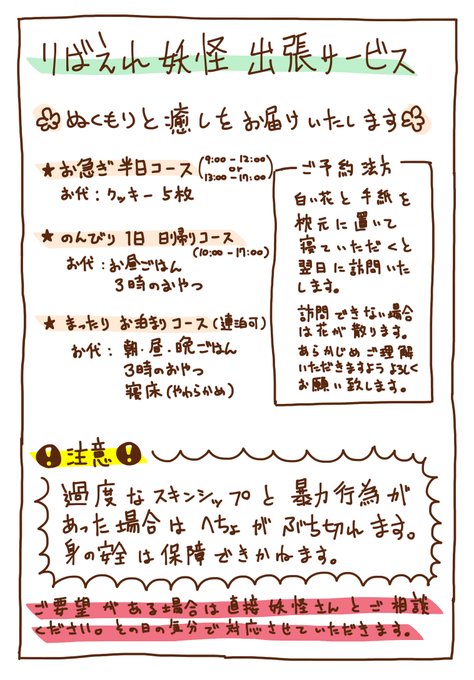 りばえれ妖怪 出張サービス
ぬくもりと癒しをお届けいたします
★お急ぎ半日コース (9:00-12:00 or 13:00-17:00)
お代:クッキー5枚
★のんびり1日 日帰りコース (10:00-17:00)
お代:お昼ごはん
3時のおやつ
★まったりお泊りコース(連泊可)
お代:朝・昼・晩ごはん
3時のおやつ
寝床(やわらかめ)
ご予約方法
白い花と手紙を
枕元に置いて
寝ていただくと
翌日に訪問いた
します。
訪問できない場合
は花が散ります。
あらかじめご理解
いただきますようよろしく
お願い致します。
!注意!
過度なスキンシップと暴力行為が
あった場合はへちょがぶち切れます。
身の安全は保障できかねます。
ご要望がある場合は直接妖怪さんとご相談
ください。その日の気分で対応させていただきます。